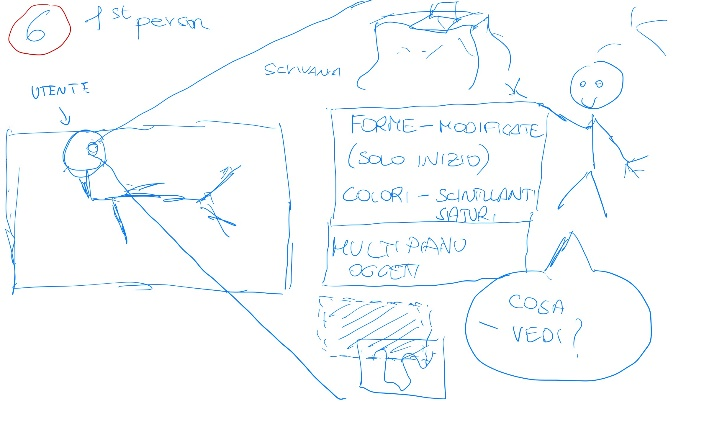 6
1st person
SCRIVANIA
UTENTE
FORME - MODIFICATE
(SOLO INIZIO)
COLORI - SCINTILLANTI
SATURI
MULTI PIANO
OGGETTI
COSA
VEDI?